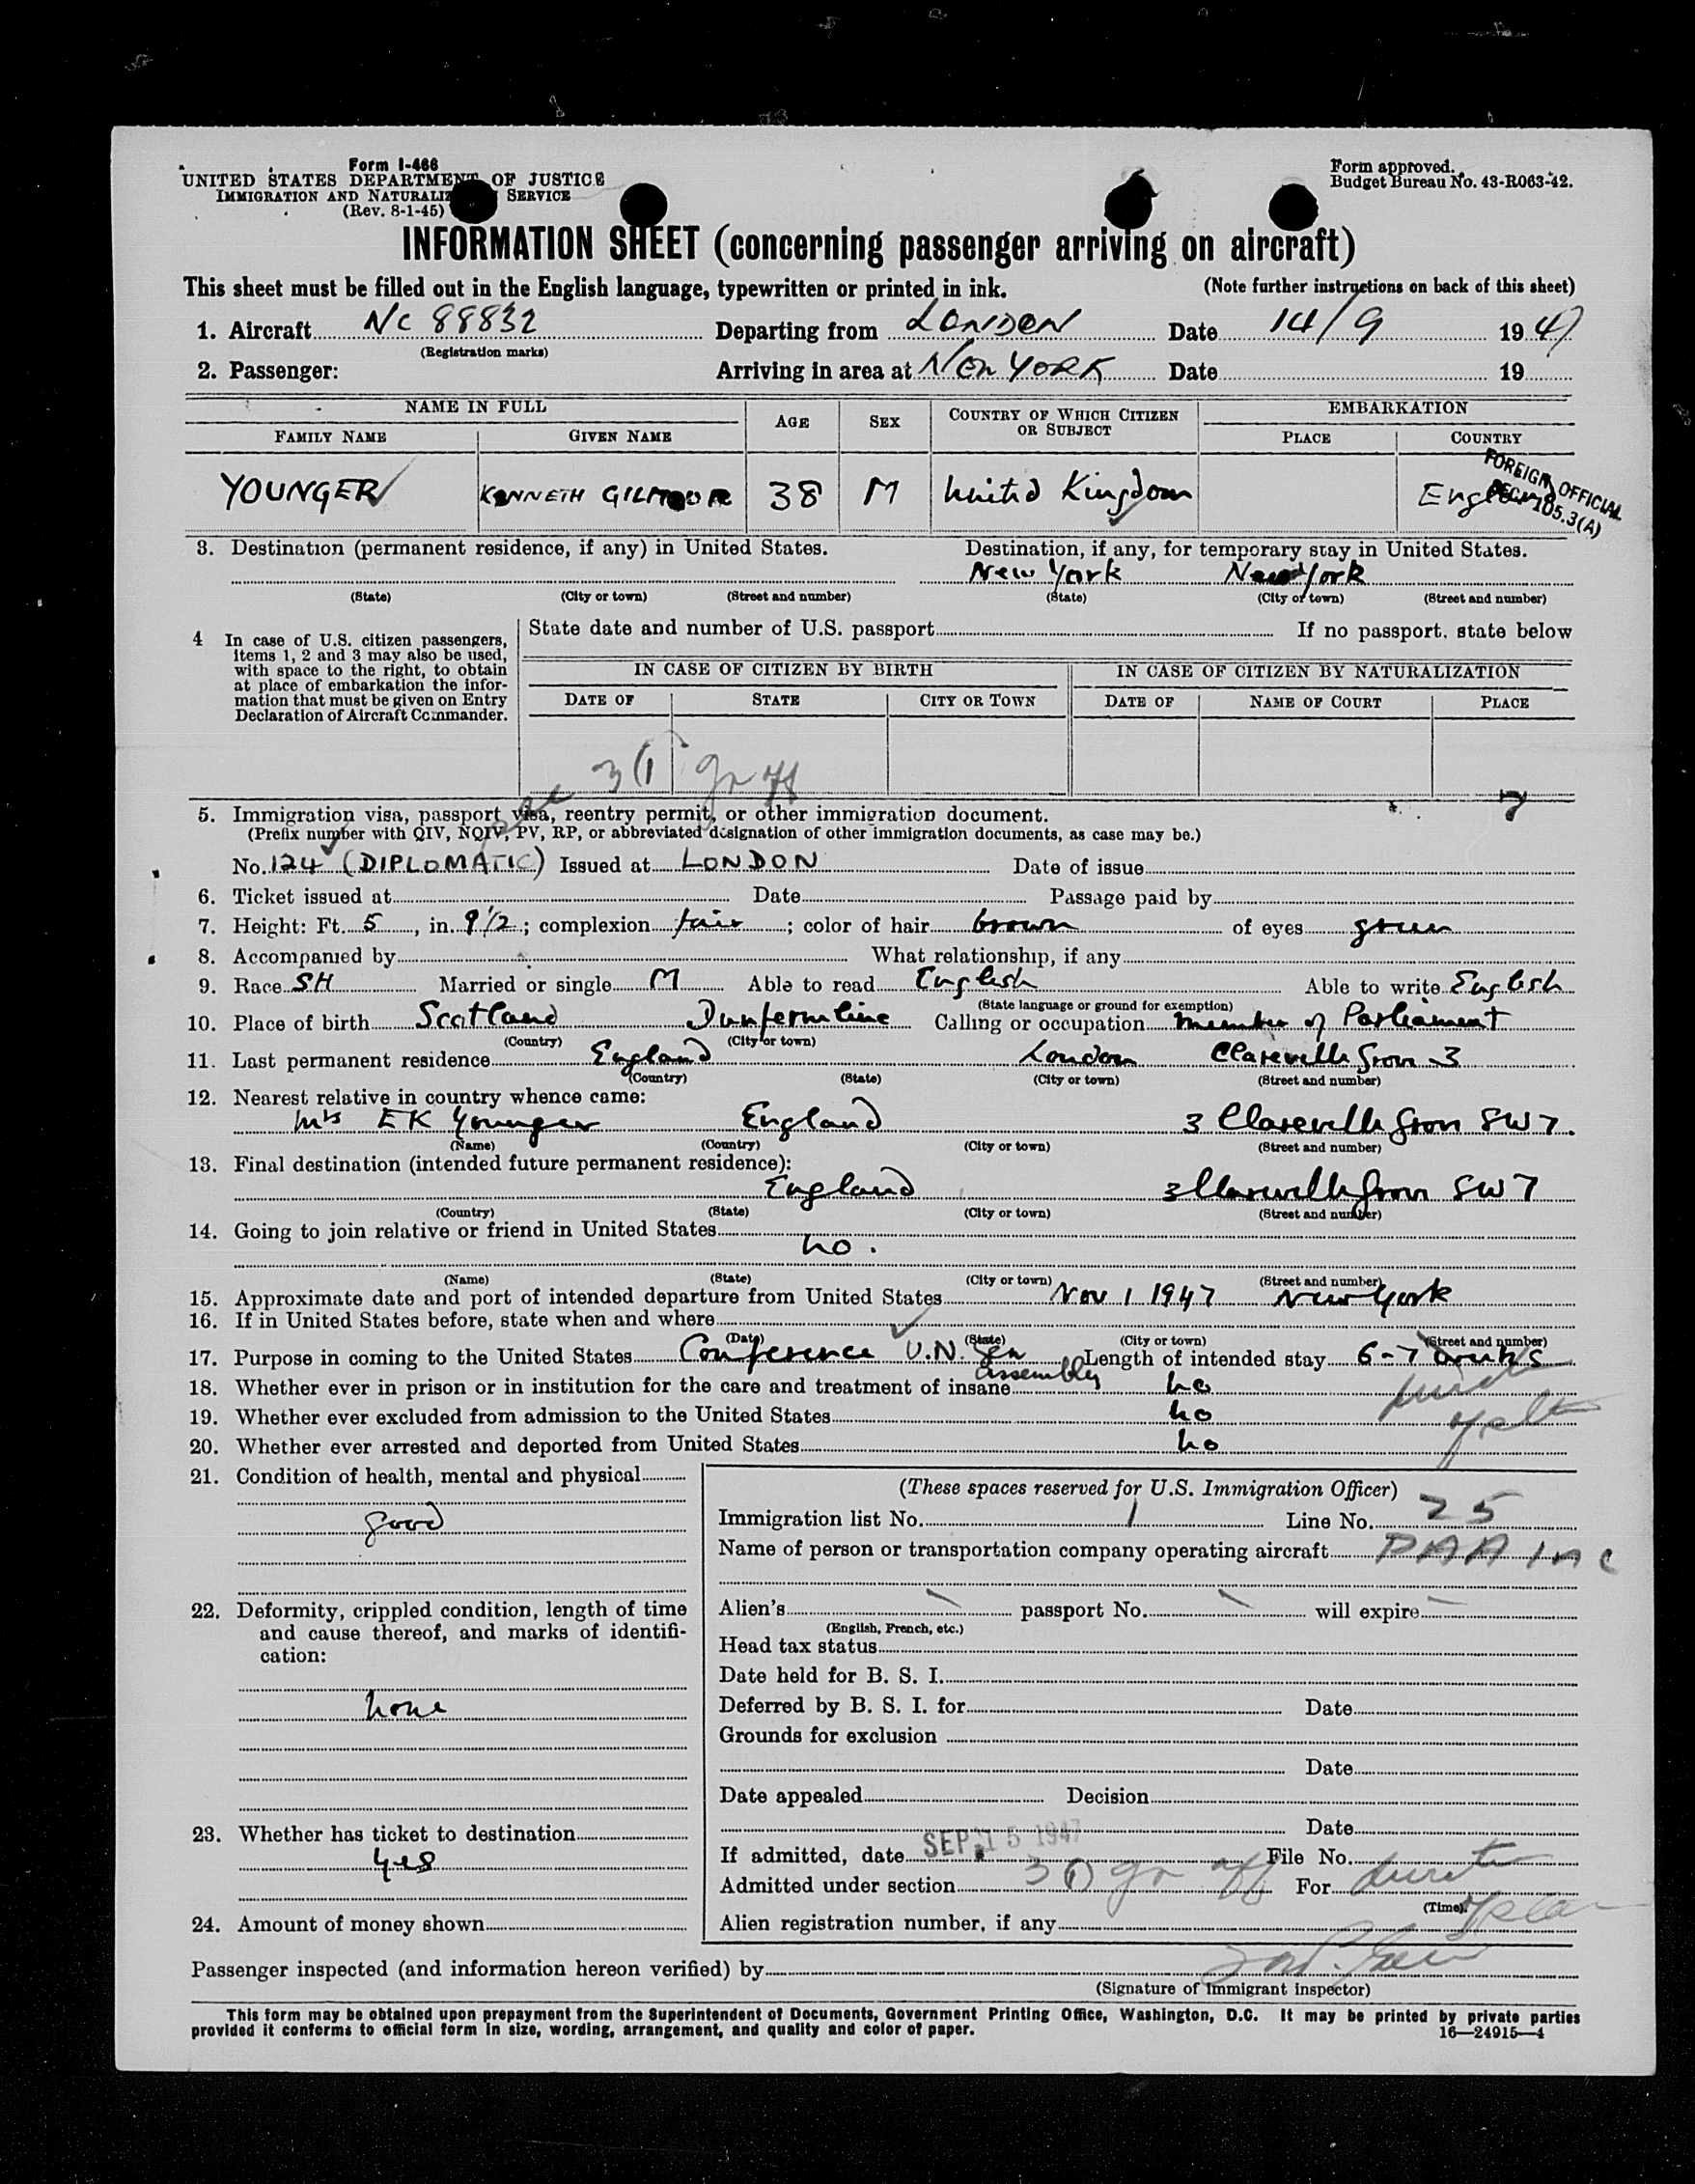 Form I-466
UNITED STATES DEPARTMENT OF JUSTICE
IMMIGRATION AND NATURALIZ SERVICE
(Rev. 8-1-45)
Form approved.
Budget Bureau No. 43-R063-42.
INFORMATION SHEET (concerning passenger arriving on aircraft)
This sheet must be filled out in the English language, typewritten or printed in ink. (Note further instructions on back of this sheet)
1. Aircraft NC 88832 Departing from LONDON Date 14/9 1947
(Registration marks)
2. Passenger: Arriving in area at NEW YORK Date 19
NAME IN FULL AGE SEX COUNTRY OF WHICH CITIZEN OR SUBJECT EMBARKATION
FAMILY NAME GIVEN NAME PLACE COUNTRY
YOUNGER KENNETH GILMOUR 38 M United Kingdom England
FOREIGN OFFICIAL
SEC. 105.3(A)
3. Destination (permanent residence, if any) in United States. Destination, if any, for temporary stay in United States.
New York New York
(State) (City or town) (Street and number) (State) (City or town) (Street and number)
4 In case of U.S. citizen passengers, items 1, 2 and 3 may also be used, with space to the right, to obtain at place of embarkation the information that must be given on Entry Declaration of Aircraft Commander.
State date and number of U.S. passport If no passport, state below
IN CASE OF CITIZEN BY BIRTH IN CASE OF CITIZEN BY NATURALIZATION
DATE OF STATE CITY OR TOWN DATE OF NAME OF COURT PLACE
5. Immigration visa, passport visa, reentry permit, or other immigration document.
(Prefix number with QIV, NQIV, PV, RP, or abbreviated designation of other immigration documents, as case may be.)
No. 124 (DIPLOMATIC) Issued at LONDON Date of issue
6. Ticket issued at Date Passage paid by
7. Height: Ft. 5, in. 9 1/2; complexion fair; color of hair brown of eyes green
8. Accompanied by What relationship, if any
9. Race SH Married or single M Able to read English Able to write English
(State language or ground for exemption)
10. Place of birth Scotland Dunfermline Calling or occupation Member of Parliament
(Country) (City or town)
11. Last permanent residence England London Clareville Grove 3
(Country) (State) (City or town) (Street and number)
12. Nearest relative in country whence came:
Mrs EK Younger England 3 Clareville Grove SW7.
(Name) (Country) (City or town) (Street and number)
13. Final destination (intended future permanent residence):
England 3 Clareville Grove SW7
(Country) (State) (City or town) (Street and number)
14. Going to join relative or friend in United States
no.
(Name) (State) (City or town) (Street and number)
15. Approximate date and port of intended departure from United States Nov 1 1947 New York
16. If in United States before, state when and where
(Date) (State) (City or town) (Street and number)
17. Purpose in coming to the United States Conference U.N. Gen Assembly Length of intended stay 6-7 weeks
18. Whether ever in prison or in institution for the care and treatment of insane no
19. Whether ever excluded from admission to the United States no
20. Whether ever arrested and deported from United States no
21. Condition of health, mental and physical
good
(These spaces reserved for U.S. Immigration Officer)
Immigration list No. 1 Line No. 25
Name of person or transportation company operating aircraft PAA Inc
22. Deformity, crippled condition, length of time and cause thereof, and marks of identification:
none
Alien's passport No. will expire
(English, French, etc.)
Head tax status
Date held for B. S. I.
Deferred by B. S. I. for Date
Grounds for exclusion
Date
Date appealed Decision
Date
23. Whether has ticket to destination
yes
If admitted, date SEP 15 1947 File No.
Admitted under section 3(1) For
(Time)
24. Amount of money shown
Alien registration number, if any
Passenger inspected (and information hereon verified) by
(Signature of Immigrant inspector)
This form may be obtained upon prepayment from the Superintendent of Documents, Government Printing Office, Washington, D.C. It may be printed by private parties
provided it conforms to official form in size, wording, arrangement, and quality and color of paper. 16—24915—4